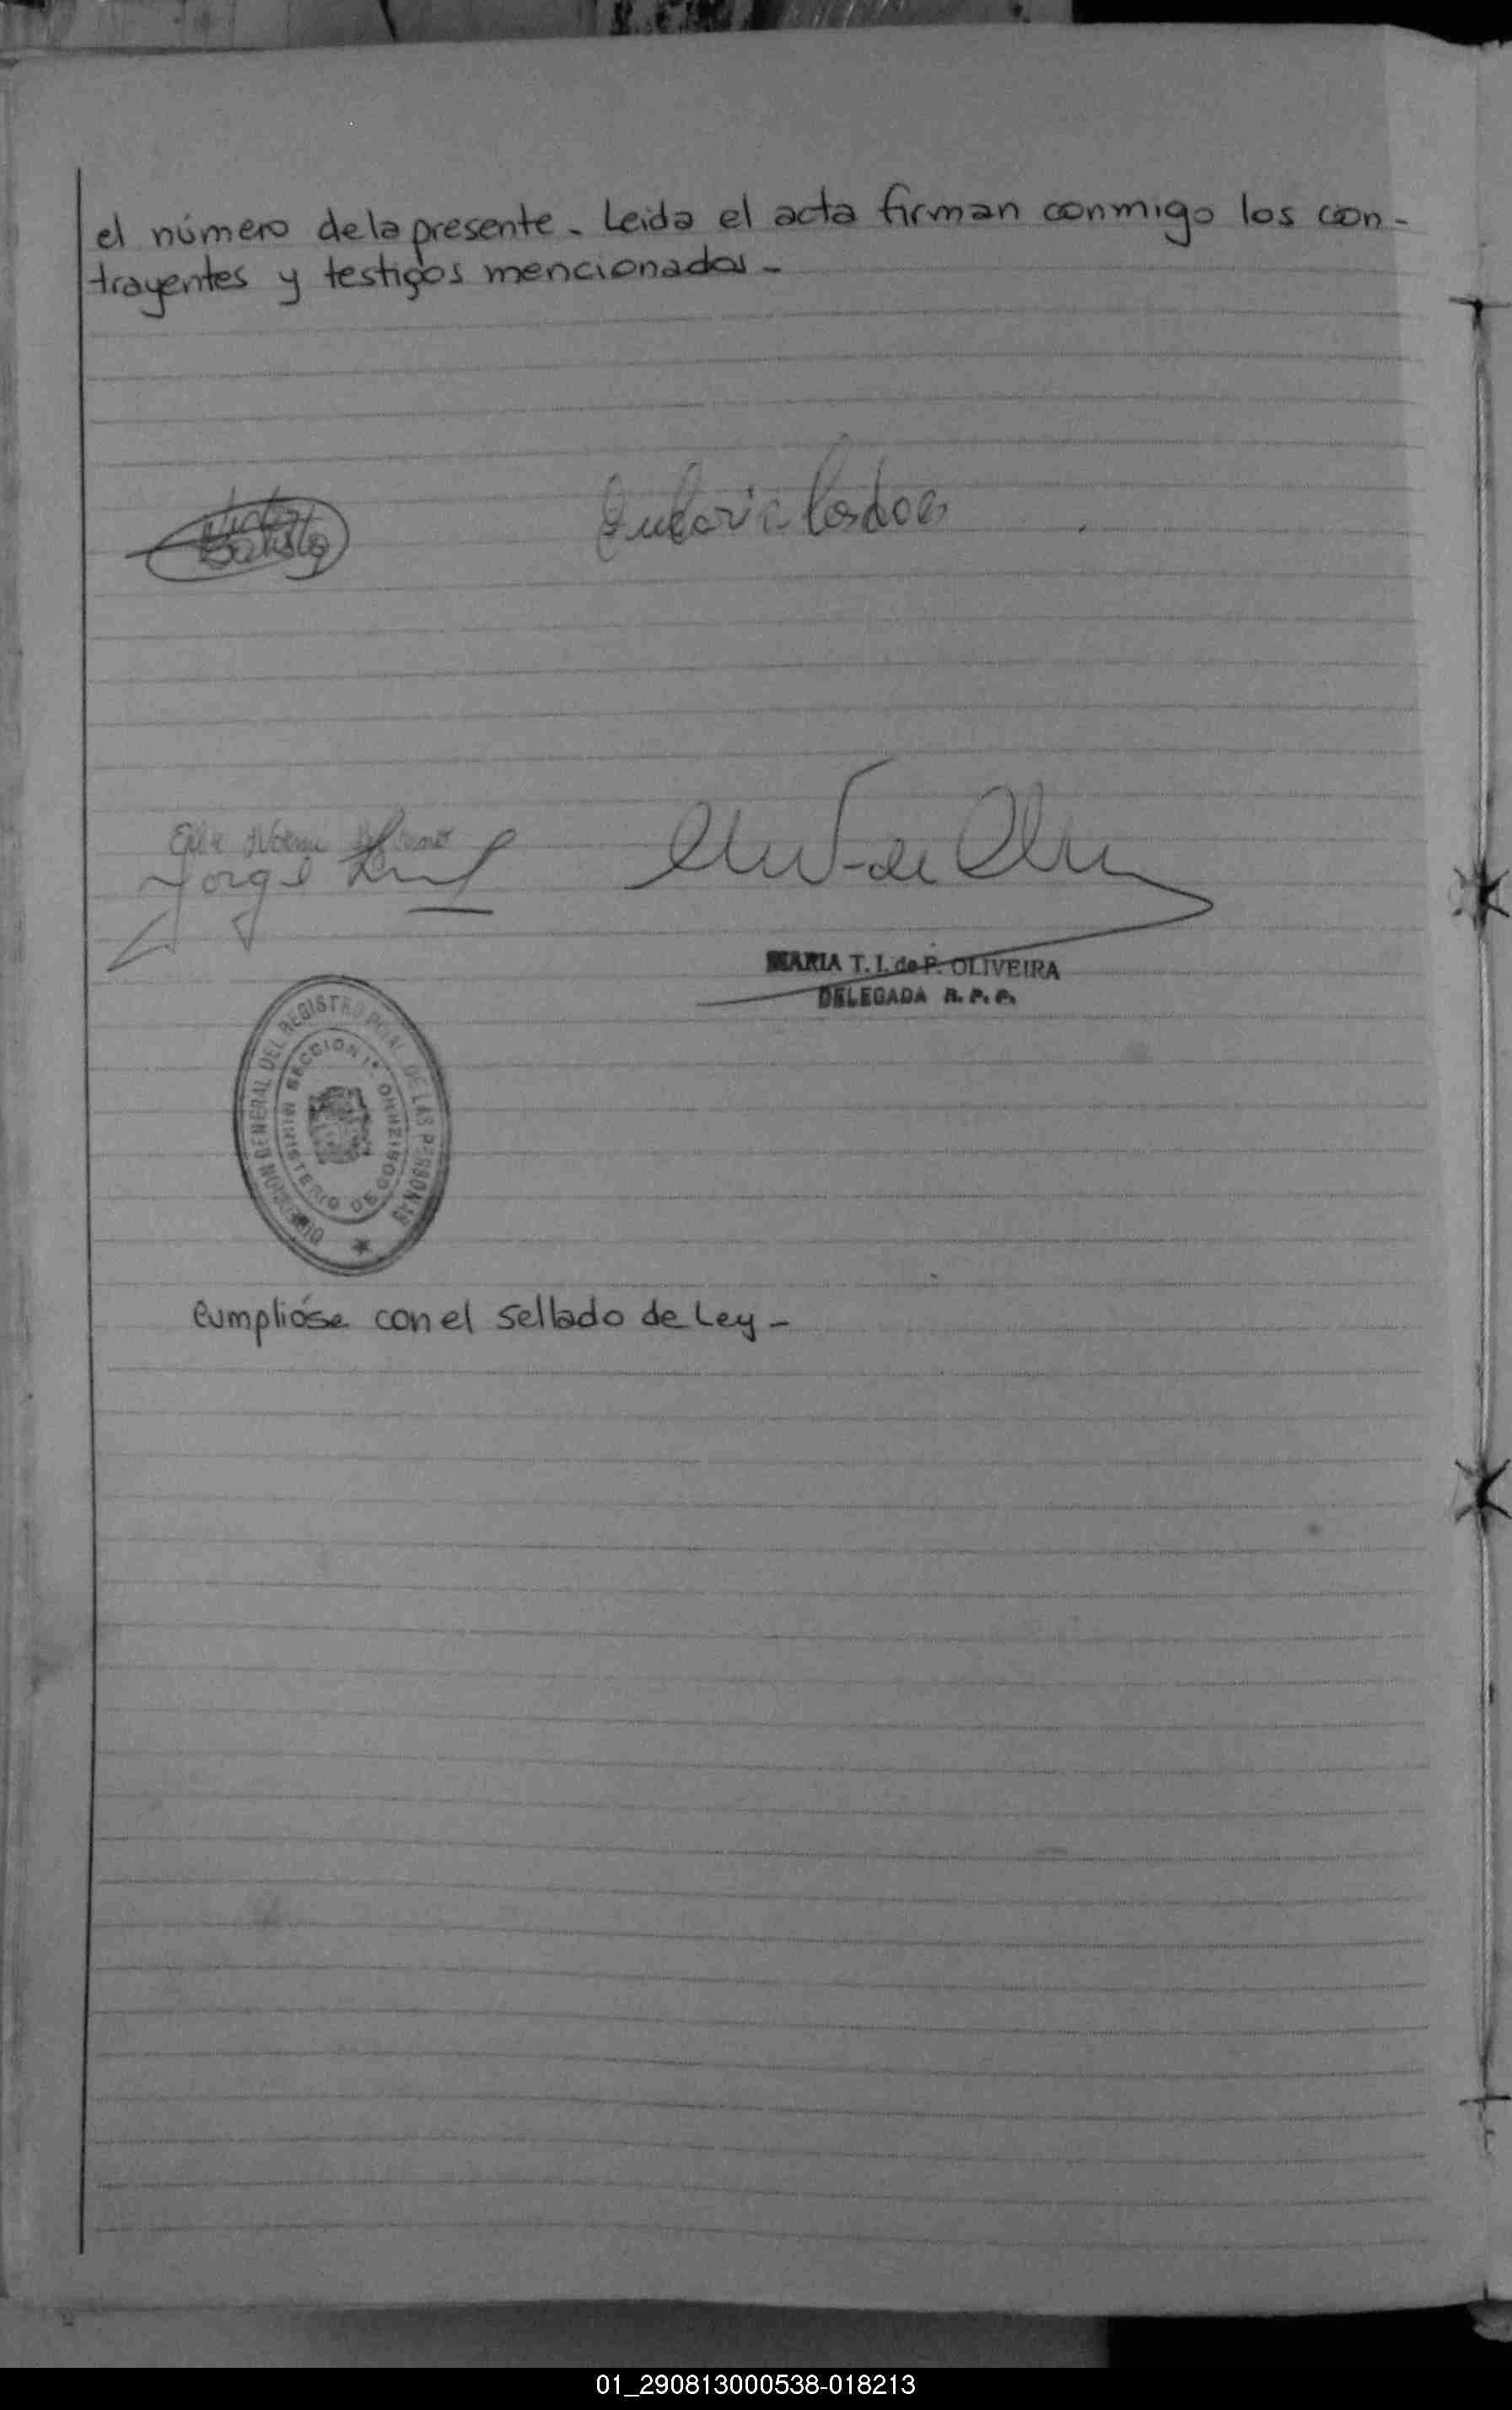 el número de la presente - Leida el acta firman conmigo los con-
trayentes y testigos mencionados -
Jorge
MARIA T. I. de P. OLIVEIRA
DELEGADA R. P. P.
DIRECCION GENERAL DEL REGISTRO PCIAL. DE LAS PERSONAS
SECCION 1ª
MINISTERIO DE GOBIERNO
Cumplióse con el sellado de Ley -
01_290813000538-018213